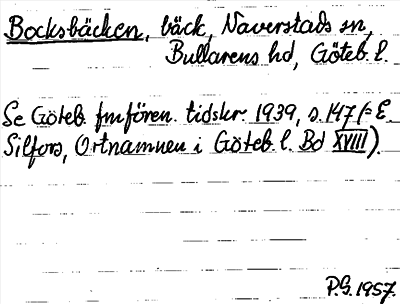 Bocksbäcken, bäck, Naverstads sn,
Bullarens hd, Göteb. l.
Se Göteb. fmfören. tidskr. 1939, s. 147 (= E.
Silfors, Ortnamnen i Göteb. l. Bd XVIII).
P.G. 1957.